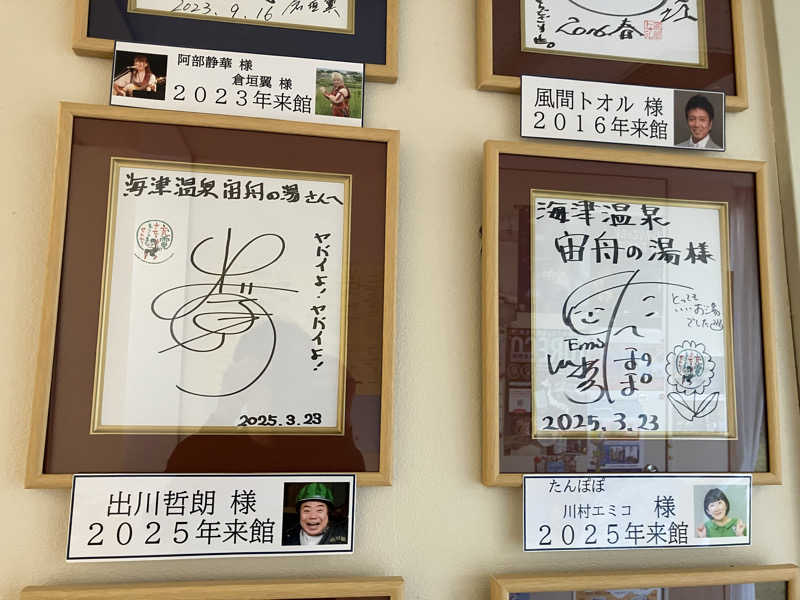 2023.9.16
阿部静華 様
倉垣翼 様
2023年来館
2016春
風間トオル 様
2016年来館
海津温泉宙舟の湯さんへ
ヤバイよ!ヤバイよ!
2025.3.23
出川哲朗 様
2025年来館
海津温泉
宙舟の湯様
とっても
いいお湯
でした
2025.3.23
たんぽぽ
川村エミコ 様
2025年来館